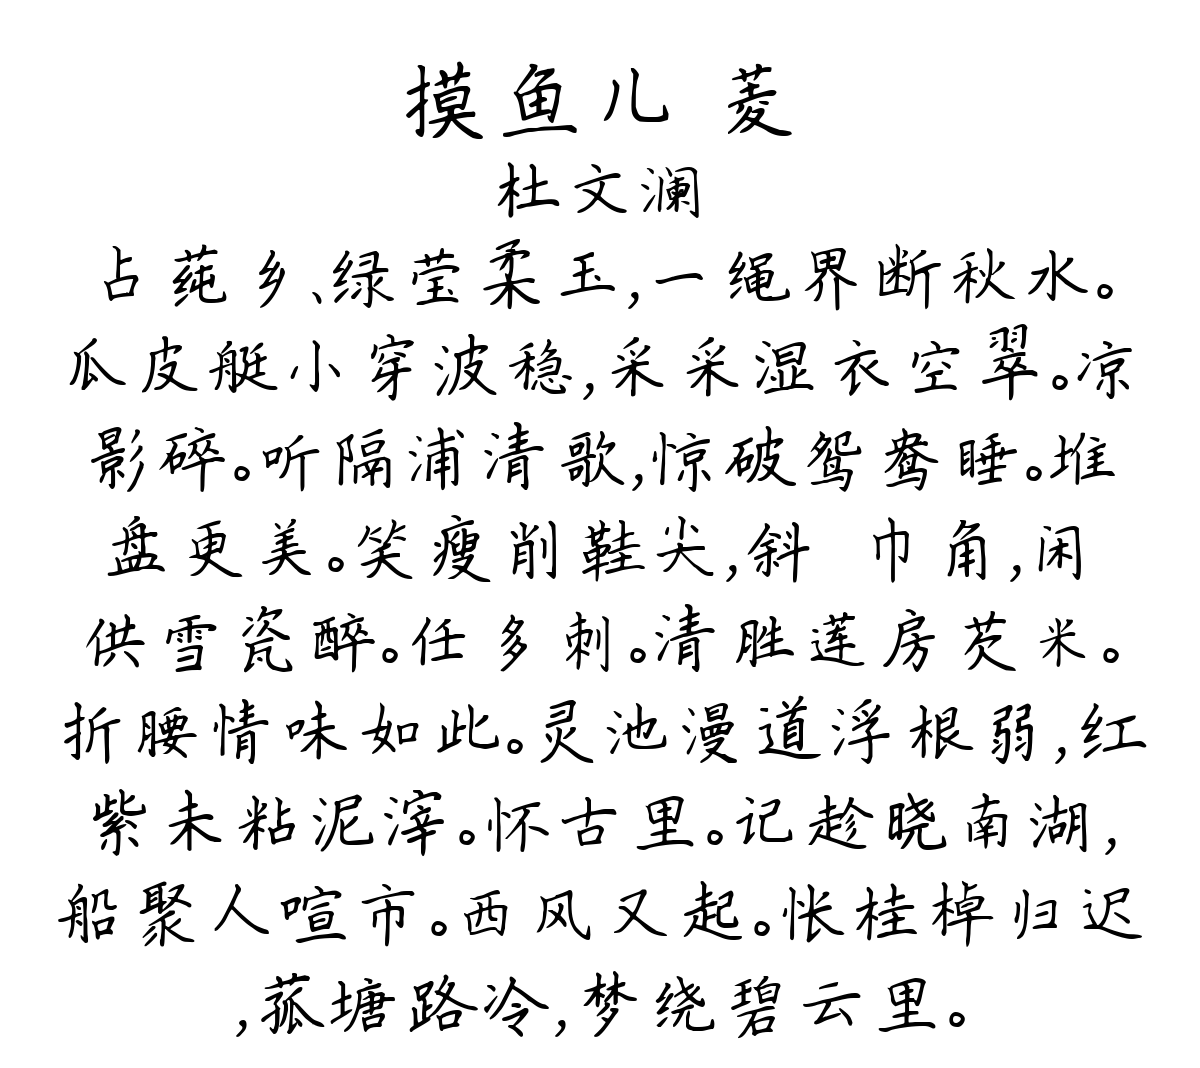 摸鱼儿 菱
杜文澜
占莼乡、绿莹柔玉,一绳界断秋水。
瓜皮艇小穿波稳,采采湿衣空翠。凉
影碎。听隔浦清歌,惊破鸳鸯睡。堆
盘更美。笑瘦削鞋尖,斜 巾角,闲
供雪瓷醉。任多刺。清胜莲房芡米。
折腰情味如此。灵池漫道浮根弱,红
紫未粘泥滓。怀古里。记趁晓南湖,
船聚人喧市。西风又起。怅桂棹归迟
,菰塘路冷,梦绕碧云里。